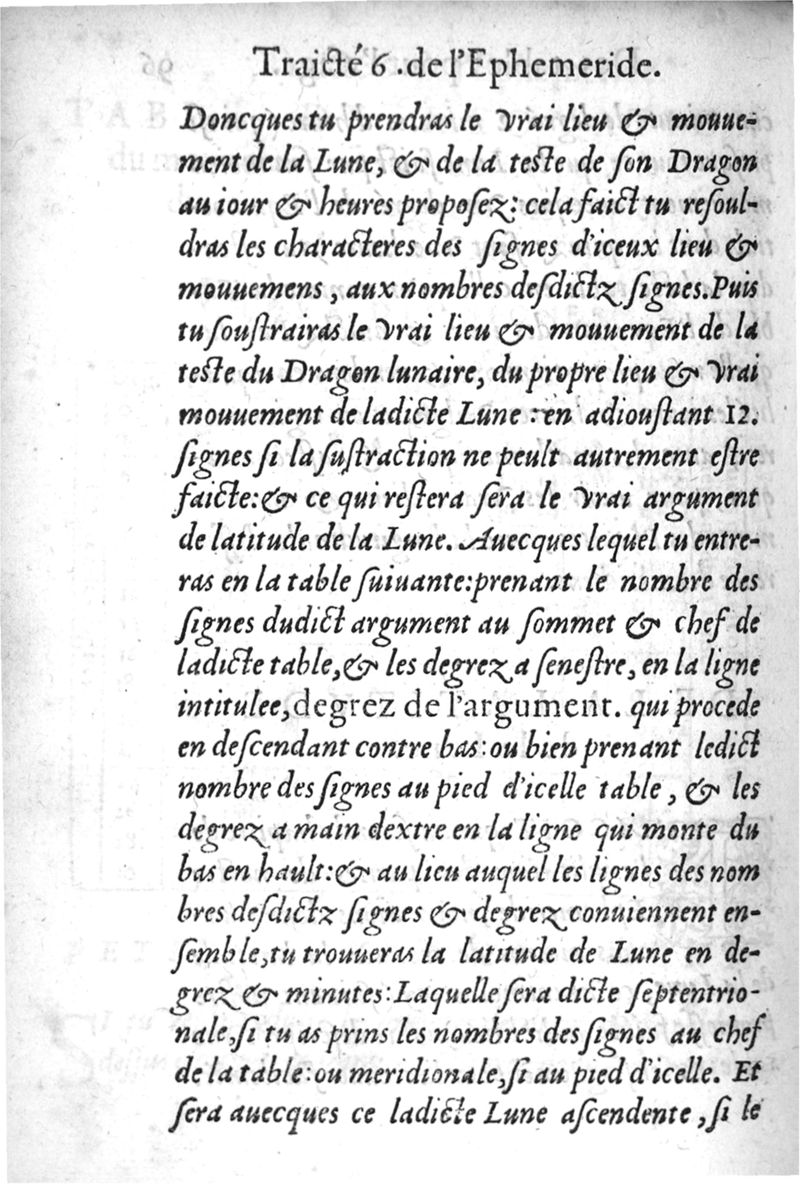 Traicté 6. de l'Ephemeride.
Doncques tu prendras le vrai lieu & mouue-
ment de la Lune, & de la teste de son Dragon
au iour & heures proposez: cela faict tu resoul-
dras les characteres des signes d'iceux lieu &
mouuemens, aux nombres desdictz signes. Puis
tu soustrairas le vrai lieu & mouuement de la
teste du Dragon lunaire, du propre lieu & vrai
mouuement de ladicte Lune: en adioustant 12.
signes si la sustraction ne peult autrement estre
faicte: & ce qui restera sera le vrai argument
de latitude de la Lune. Auecques lequel tu entre-
ras en la table suiuante: prenant le nombre des
signes dudict argument au sommet & chef de
ladicte table, & les degrez a senestre, en la ligne
intitulee, degrez de l'argument. qui procede
en descendant contre bas: ou bien prenant ledict
nombre des signes au pied d'icelle table, & les
degrez a main dextre en la ligne qui monte du
bas en hault: & au lieu auquel les lignes des nom
bres desdictz signes & degrez conuiennent en-
semble, tu trouueras la latitude de Lune en de-
grez & minutes: Laquelle sera dicte septentrio-
nale, si tu as prins les nombres des signes au chef
de la table: ou meridionale, si au pied d'icelle. Et
sera auecques ce ladicte Lune ascendente, si le